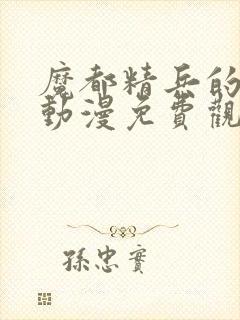 魔都精兵的
動漫免費觀
孫忠實